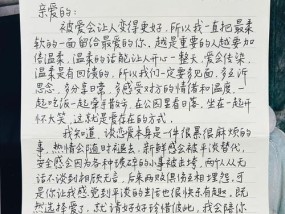 亲爱的:
被爱会让人变得更好,所以我一直把最柔
软的一面留给最爱的你,越是重要的人越要加
倍温柔,温柔的话能让人开心一整天,爱会传染,
温柔是有回馈的,所以我们一定要多面,多
思念,多分享日常,多感受对方的情绪和温度,一
起吃饭一起牵手去散步,在公园里看日落,坐在一起开
怀大笑,这就是爱存在的方式。
我知道,谈恋爱本身是一件很累很麻烦的
事,热情会随时退去,新鲜感会被平淡替代,
安全感会因为各种琐碎的小事被击垮,两个人从无
话不谈到相顾无言,原来两败俱伤互相埋怨,可
是你让我感觉到平淡的生活也很快乐有趣,既
然选择爱了,就请好好珍惜彼此,我会陪